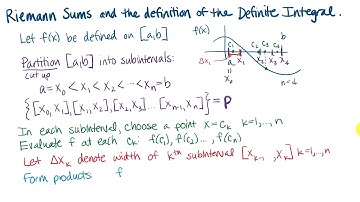 Riemann Sums and the definition of the Definite Integral.
Let f(x) be defined on [a,b]
Partition [a,b] into subintervals:
cut up
a = x₀ < x₁ < x₂ < ... < xₙ = b
{[x₀, x₁], [x₁, x₂], [x₂, x₃] ... [xₙ₋₁, xₙ]} = P
f(x)
c₁ c₂ c₃ b
Δx₁ a x₁ x₂ x₃ x₄
x₀
n = 4
In each subinterval, choose a point x = cₖ k = 1, ..., n
Evaluate f at each cₖ: f(c₁), f(c₂) ..., f(cₙ)
Let Δxₖ denote width of kᵗʰ subinterval [xₖ₋₁, xₖ] k = 1, ..., n
Form products f